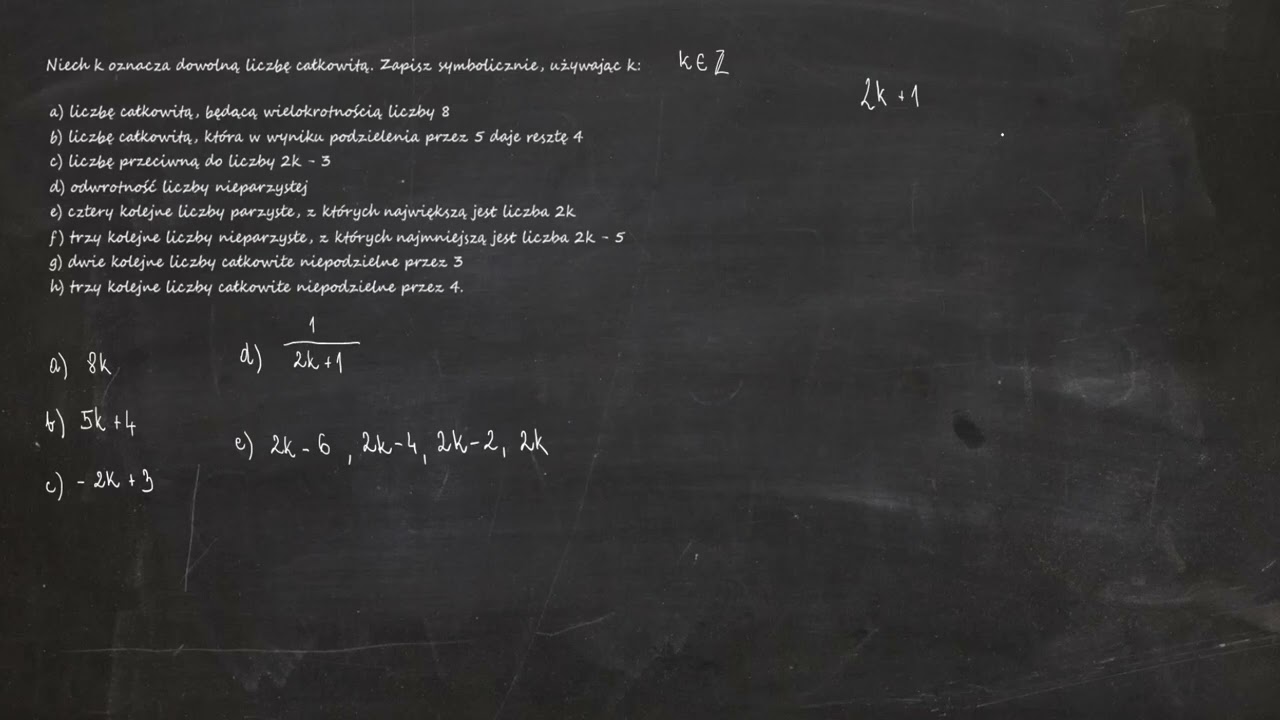 Niech k oznacza dowolną liczbę całkowitą. Zapisz symbolicznie, używając k:
k ∈ Z
2k + 1
a) liczbę całkowitą, będącą wielokrotnością liczby 8
b) liczbę całkowitą, która w wyniku podzielenia przez 5 daje resztę 4
c) liczbę przeciwną do liczby 2k - 3
d) odwrotność liczby nieparzystej
e) cztery kolejne liczby parzyste, z których największą jest liczba 2k
f) trzy kolejne liczby nieparzyste, z których najmniejszą jest liczba 2k - 5
g) dwie kolejne liczby całkowite niepodzielne przez 3
h) trzy kolejne liczby całkowite niepodzielne przez 4.
a) 8k
b) 5k + 4
c) - 2k + 3
d) 1 / (2k + 1)
e) 2k - 6, 2k - 4, 2k - 2, 2k